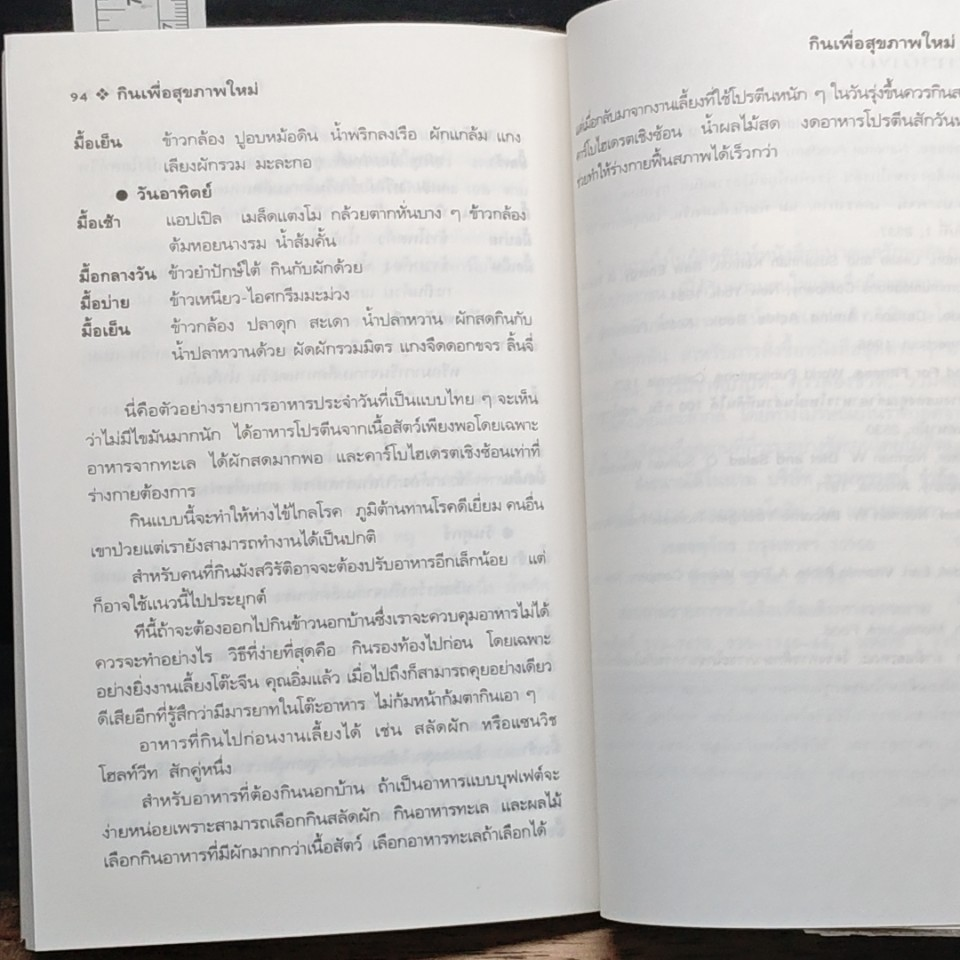 94 ❖ กินเพื่อสุขภาพใหม่
มื้อเย็น ข้าวกล้อง ปูอบหม้อดิน น้ำพริกลงเรือ ผักแกล้ม แกง
เลียงผักรวม มะละกอ
● วันอาทิตย์
มื้อเช้า แอปเปิล เมล็ดแตงโม กล้วยตากหั่นบาง ๆ ข้าวกล้อง
ต้มหอยนางรม น้ำส้มคั้น
มื้อกลางวัน ข้าวยำปักษ์ใต้ กินกับผักด้วย
มื้อบ่าย ข้าวเหนียว-ไอศกรีมมะม่วง
มื้อเย็น ข้าวกล้อง ปลาดุก สะเดา น้ำปลาหวาน ผักสดกินกับ
น้ำปลาหวานด้วย ผัดผักรวมมิตร แกงจืดดอกขจร ลิ้นจี่
นี่คือตัวอย่างรายการอาหารประจำวันที่เป็นแบบไทย ๆ จะเห็น
ว่าไม่มีไขมันมากนัก ได้อาหารโปรตีนจากเนื้อสัตว์เพียงพอโดยเฉพาะ
อาหารจากทะเล ได้ผักสดมากพอ และคาร์โบไฮเดรตเชิงซ้อนเท่าที่
ร่างกายต้องการ
กินแบบนี้จะทำให้ห่างไข้ไกลโรค ภูมิต้านทานโรคดีเยี่ยม คนอื่น
เขาป่วยแต่เรายังสามารถทำงานได้เป็นปกติ
สำหรับคนที่กินมังสวิรัติอาจจะต้องปรับอาหารอีกเล็กน้อย แต่
ก็อาจใช้แนวนี้ไปประยุกต์
ทีนี้ถ้าจะต้องออกไปกินข้าวนอกบ้านซึ่งเราจะควบคุมอาหารไม่ได้
ควรจะทำอย่างไร วิธีที่ง่ายที่สุดคือ กินรองท้องไปก่อน โดยเฉพาะ
อย่างยิ่งงานเลี้ยงโต๊ะจีน คุณอิ่มแล้ว เมื่อไปถึงก็สามารถคุยอย่างเดียว
ดีเสียอีกที่รู้สึกว่ามีมารยาทในโต๊ะอาหาร ไม่ก้มหน้าก้มตากินเอา ๆ
อาหารที่กินไปก่อนงานเลี้ยงได้ เช่น สลัดผัก หรือแซนวิช
โฮลท์วีท สักคู่หนึ่ง
สำหรับอาหารที่ต้องกินนอกบ้าน ถ้าเป็นอาหารแบบบุฟเฟต์จะ
ง่ายหน่อยเพราะสามารถเลือกกินสลัดผัก กินอาหารทะเล และผลไม้
เลือกกินอาหารที่มีผักมากกว่าเนื้อสัตว์ เลือกอาหารทะเลถ้าเลือกได้
กินเพื่อสุขภาพใหม่
แต่เมื่อกลับมาจากงานเลี้ยงที่ใช้โปรตีนหนัก ๆ ในวันรุ่งขึ้นควรกิน
คาร์โบไฮเดรตเชิงซ้อน น้ำผลไม้สด งดอาหารโปรตีนสักวัน
ช่วยทำให้ร่างกายฟื้นสภาพได้เร็วกว่า